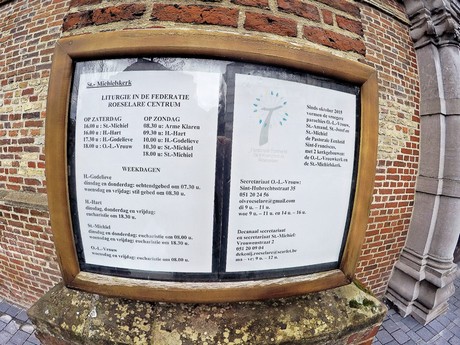 St.-Michielskerk
LITURGIE IN DE FEDERATIE
ROESELARE CENTRUM
OP ZATERDAG
16.00 u : St.-Michiel
16.00 u : H.-Hart
17.30 u : H.-Godelieve
18.00 u : O.-L.-Vrouw
OP ZONDAG
08.30 u : Arme Klaren
09.30 u : H.-Hart
10.00 u : H.-Godelieve
10.30 u : St.-Michiel
18.00 u : St.-Michiel
WEEKDAGEN
H.-Godelieve
dinsdag en donderdag: ochtendgebed om 07.30 u.
woensdag en vrijdag: stil gebed om 08.30 u.
H.-Hart
dinsdag en donderdag: eucharistie om 18.30 u.
St.-Michiel
dinsdag en donderdag: eucharistie om 08.30 u.
woensdag en vrijdag: eucharistie om 18.30 u.
O.-L.-Vrouw
woensdag en vrijdag: eucharistie om 08.00 u.
Sinds oktober 2015
vormen de vroegere
parochies O.-L.-Vrouw,
St.-Amand, St.-Jozef en
St.-Michiel
de Pastorale Eenheid
Sint-Franciscus,
met 2 kerkgebouwen:
de O.-L.-Vrouwkerk en
de St.-Michielskerk.
Secretariaat O.-L.-Vrouw:
Sint-Hubrechtsstraat 35
051 20 24 56
olv.roeselare@gmail.com
di 9 u. - 11 u.
woe 9 u. - 11 u. en 14 u. - 16 u.
Decanaal secretariaat
en secretariaat St.-Michiel:
Vrouwenstraat 2
051 20 09 04
dekenij.roeselare@scarlet.be
ma - vr: 9 u. - 12 u.